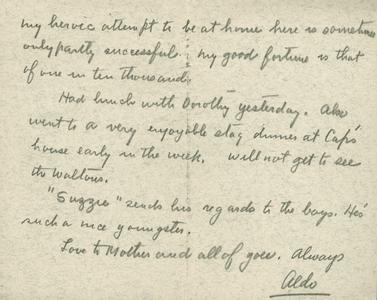 my heroic attempt to be at home here is sometimes
only partly successful. my good fortune is that
of one in ten thousand.
Had lunch with Dorothy yesterday. Also
went to a very enjoyable stag dinner at Cap's
house early in the week. Will not get to see
the Waltons.
"Suzzie" sends his regards to the boys. He's
such a nice youngster.
Love to Mother and all of you. Always
Aldo